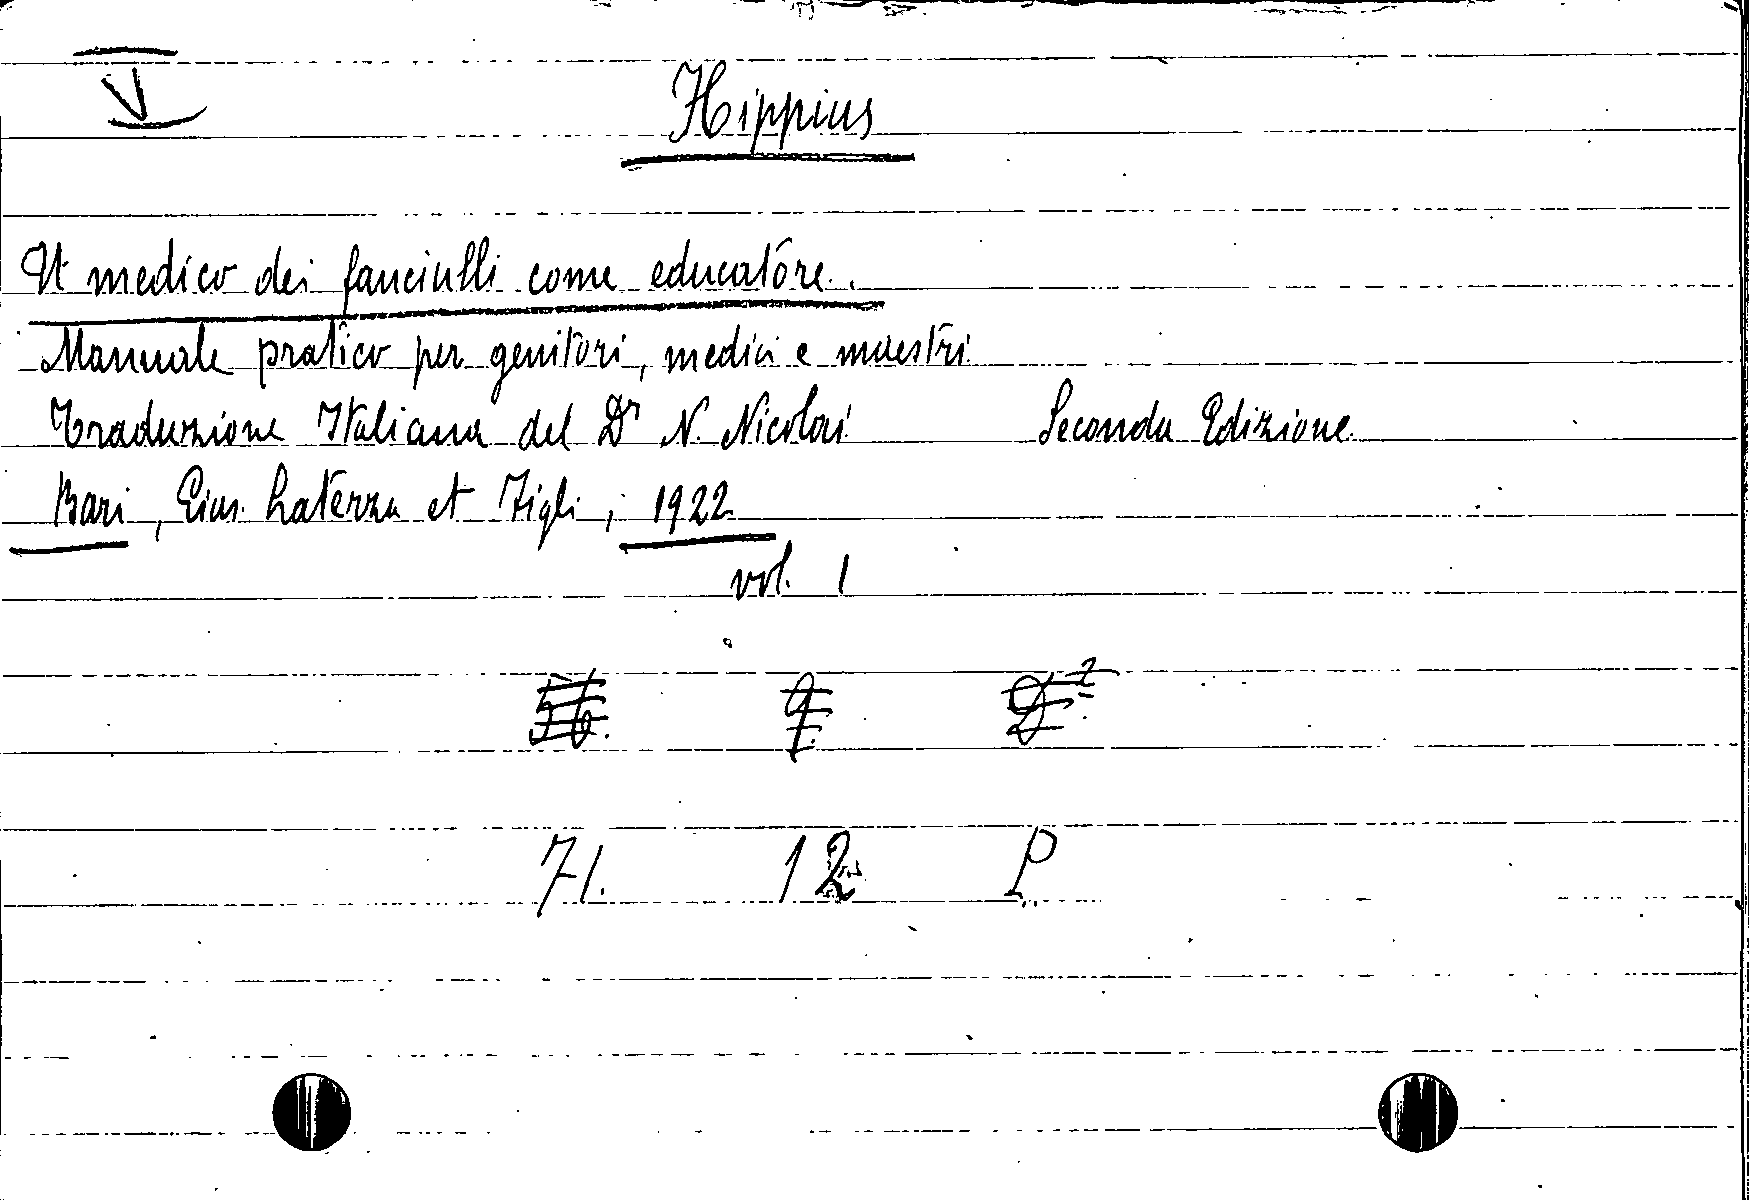 V
Hippius
Il medico dei fanciulli come educatore.
Manuale pratico per genitori, medici e maestri
Traduzione Italiana del Dr N. Nicolai Seconda Edizione
Bari, Gius. Laterza et Figli, 1922
vol. 1
71. 12 P